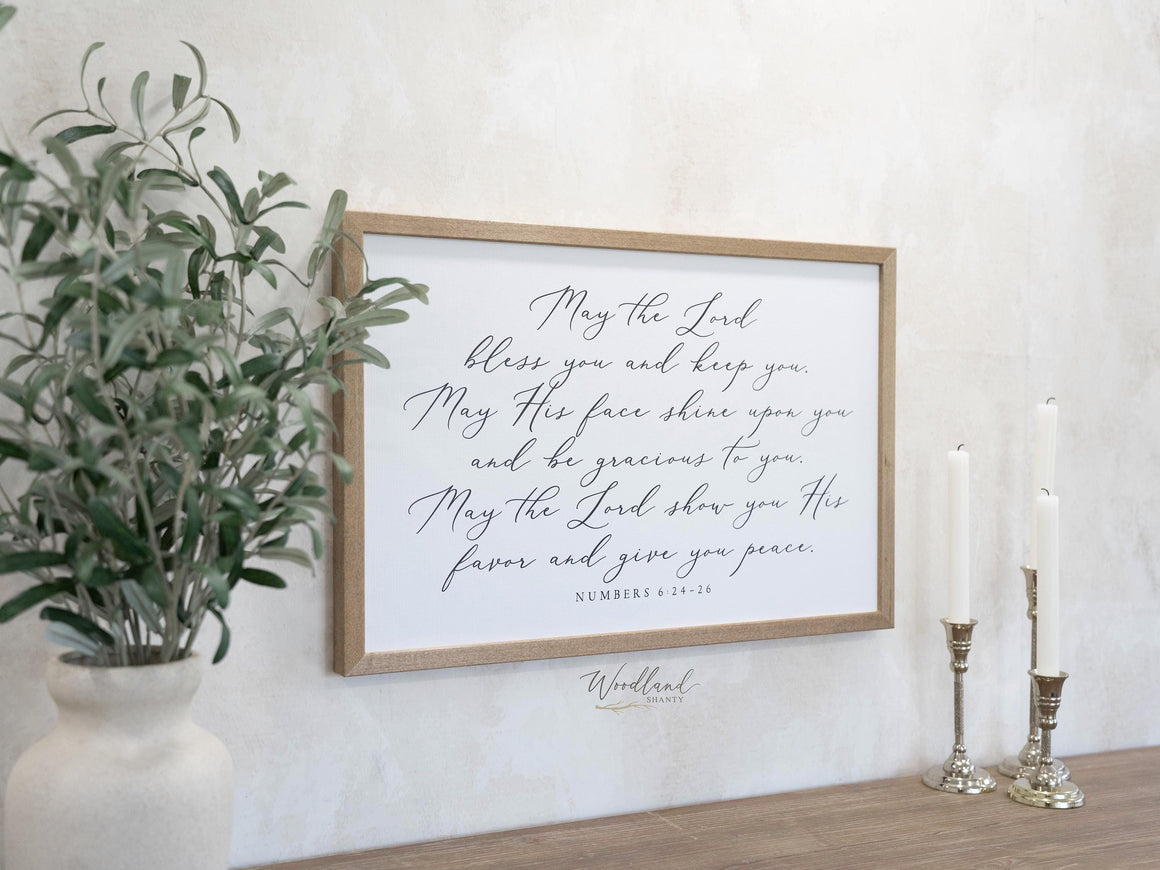 May the Lord
bless you and keep you.
May His face shine upon you
and be gracious to you.
May the Lord show you His
favor and give you peace.
NUMBERS 6:24-26
Woodland
SHANTY